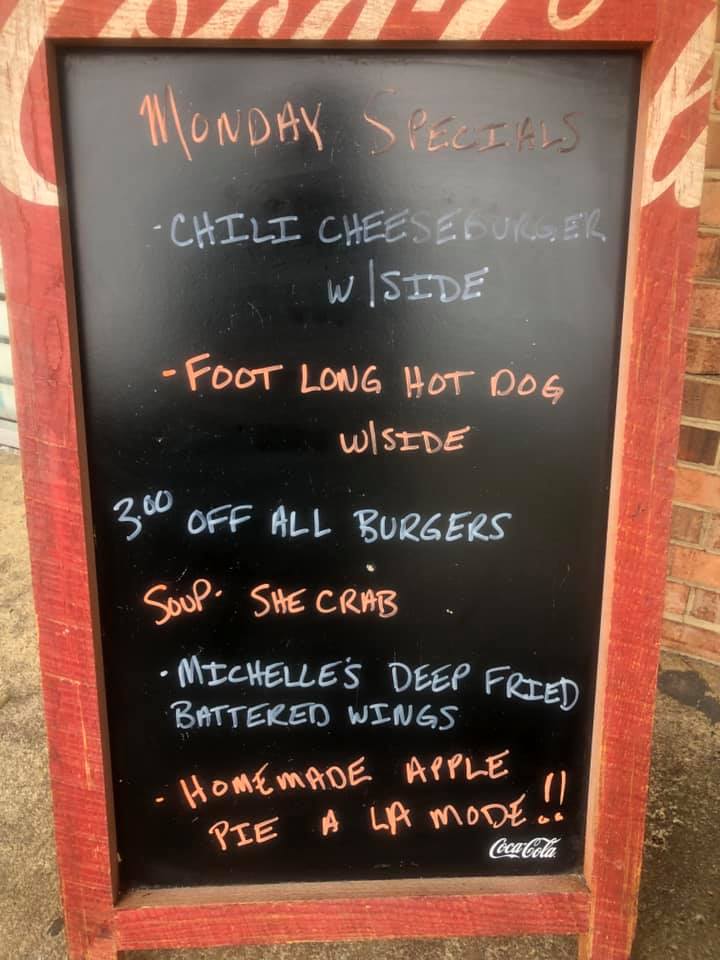 MONDAY SPECIALS
- CHILI CHEESEBURGER
W/SIDE
- FOOT LONG HOT DOG
W/SIDE
3.00 OFF ALL BURGERS
SOUP. SHE CRAB
. MICHELLE'S DEEP FRIED
BATTERED WINGS
- HOMEMADE APPLE
PIE A LA MODE!!
Coca-Cola